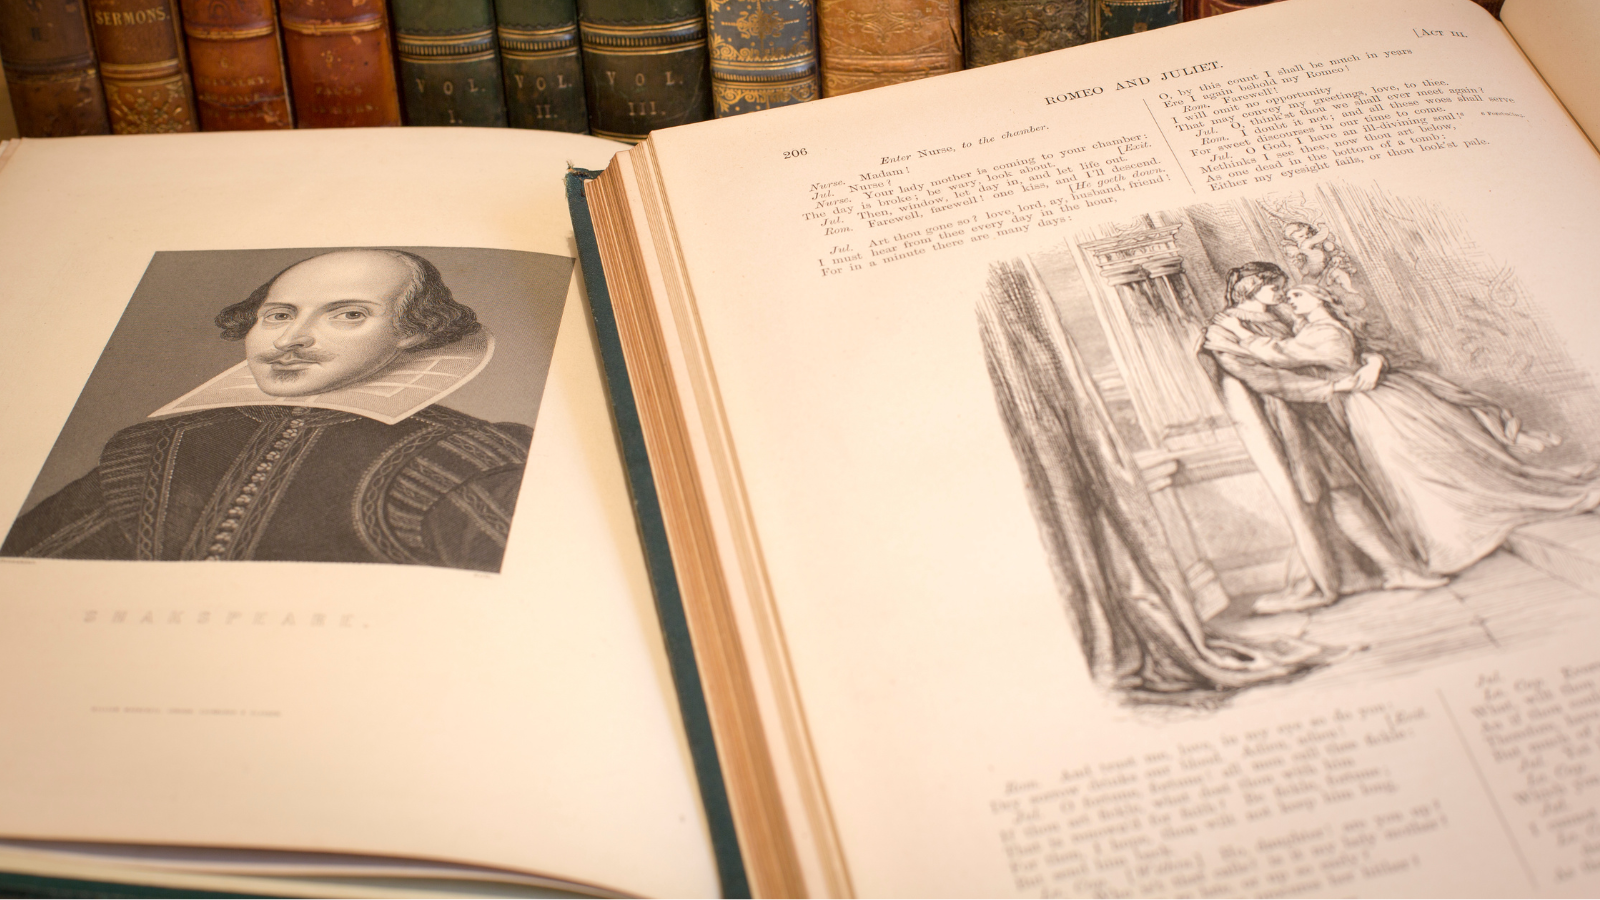 SERMONS.
VOL.
I.
VOL.
II.
VOL.
III.
SHAKSPEARE.
206
ROMEO AND JULIET.
[Act III.
Enter Nurse, to the chamber.
Nurse. Madam!
Jul. Nurse?
Nurse. Your lady mother is coming to your chamber:
The day is broke; be wary, look about. [Exit.
Jul. Then, window, let day in, and let life out.
Rom. Farewell, farewell! one kiss, and I'll descend.
[He goeth down.
Jul. Art thou gone so? love, lord, ay, husband, friend!
I must hear from thee every day in the hour,
For in a minute there are many days:
O, by this count I shall be much in years
Ere I again behold my Romeo!
Rom. Farewell!
I will omit no opportunity
That may convey my greetings, love, to thee.
Jul. O, think'st thou we shall ever meet again?
Rom. I doubt it not; and all these woes shall serve
For sweet discourses in our time to come.
Jul. O God, I have an ill-divining soul:
Methinks I see thee, now thou art below,
As one dead in the bottom of a tomb:
Either my eyesight fails, or thou look'st pale.
Rom. And trust me, love, in my eye so do you:
Dry sorrow drinks our blood. Adieu, adieu! [Exit.
Jul. O fortune, fortune! all men call thee fickle:
If thou art fickle, what dost thou with him
That is renown'd for faith? Be fickle, fortune;
For then, I hope, thou wilt not keep him long,
But send him back.
La. Cap. [Within.] Ho, daughter! are you up?